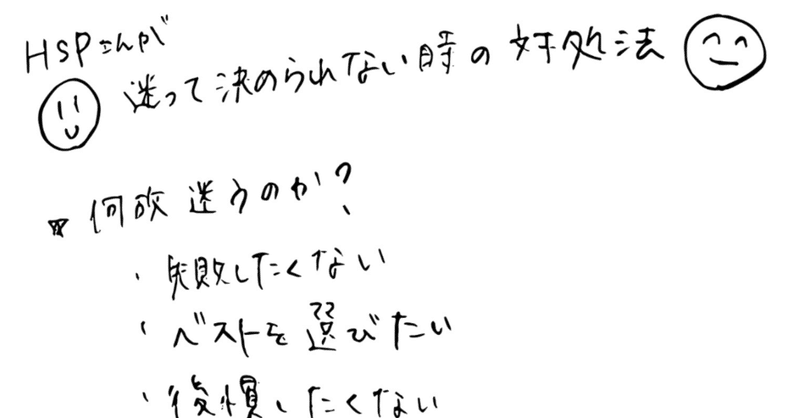 HSPさんが
迷って決められない時の対処法
何故迷うのか?
・失敗したくない
・ベストを選びたい
・後悔したくない